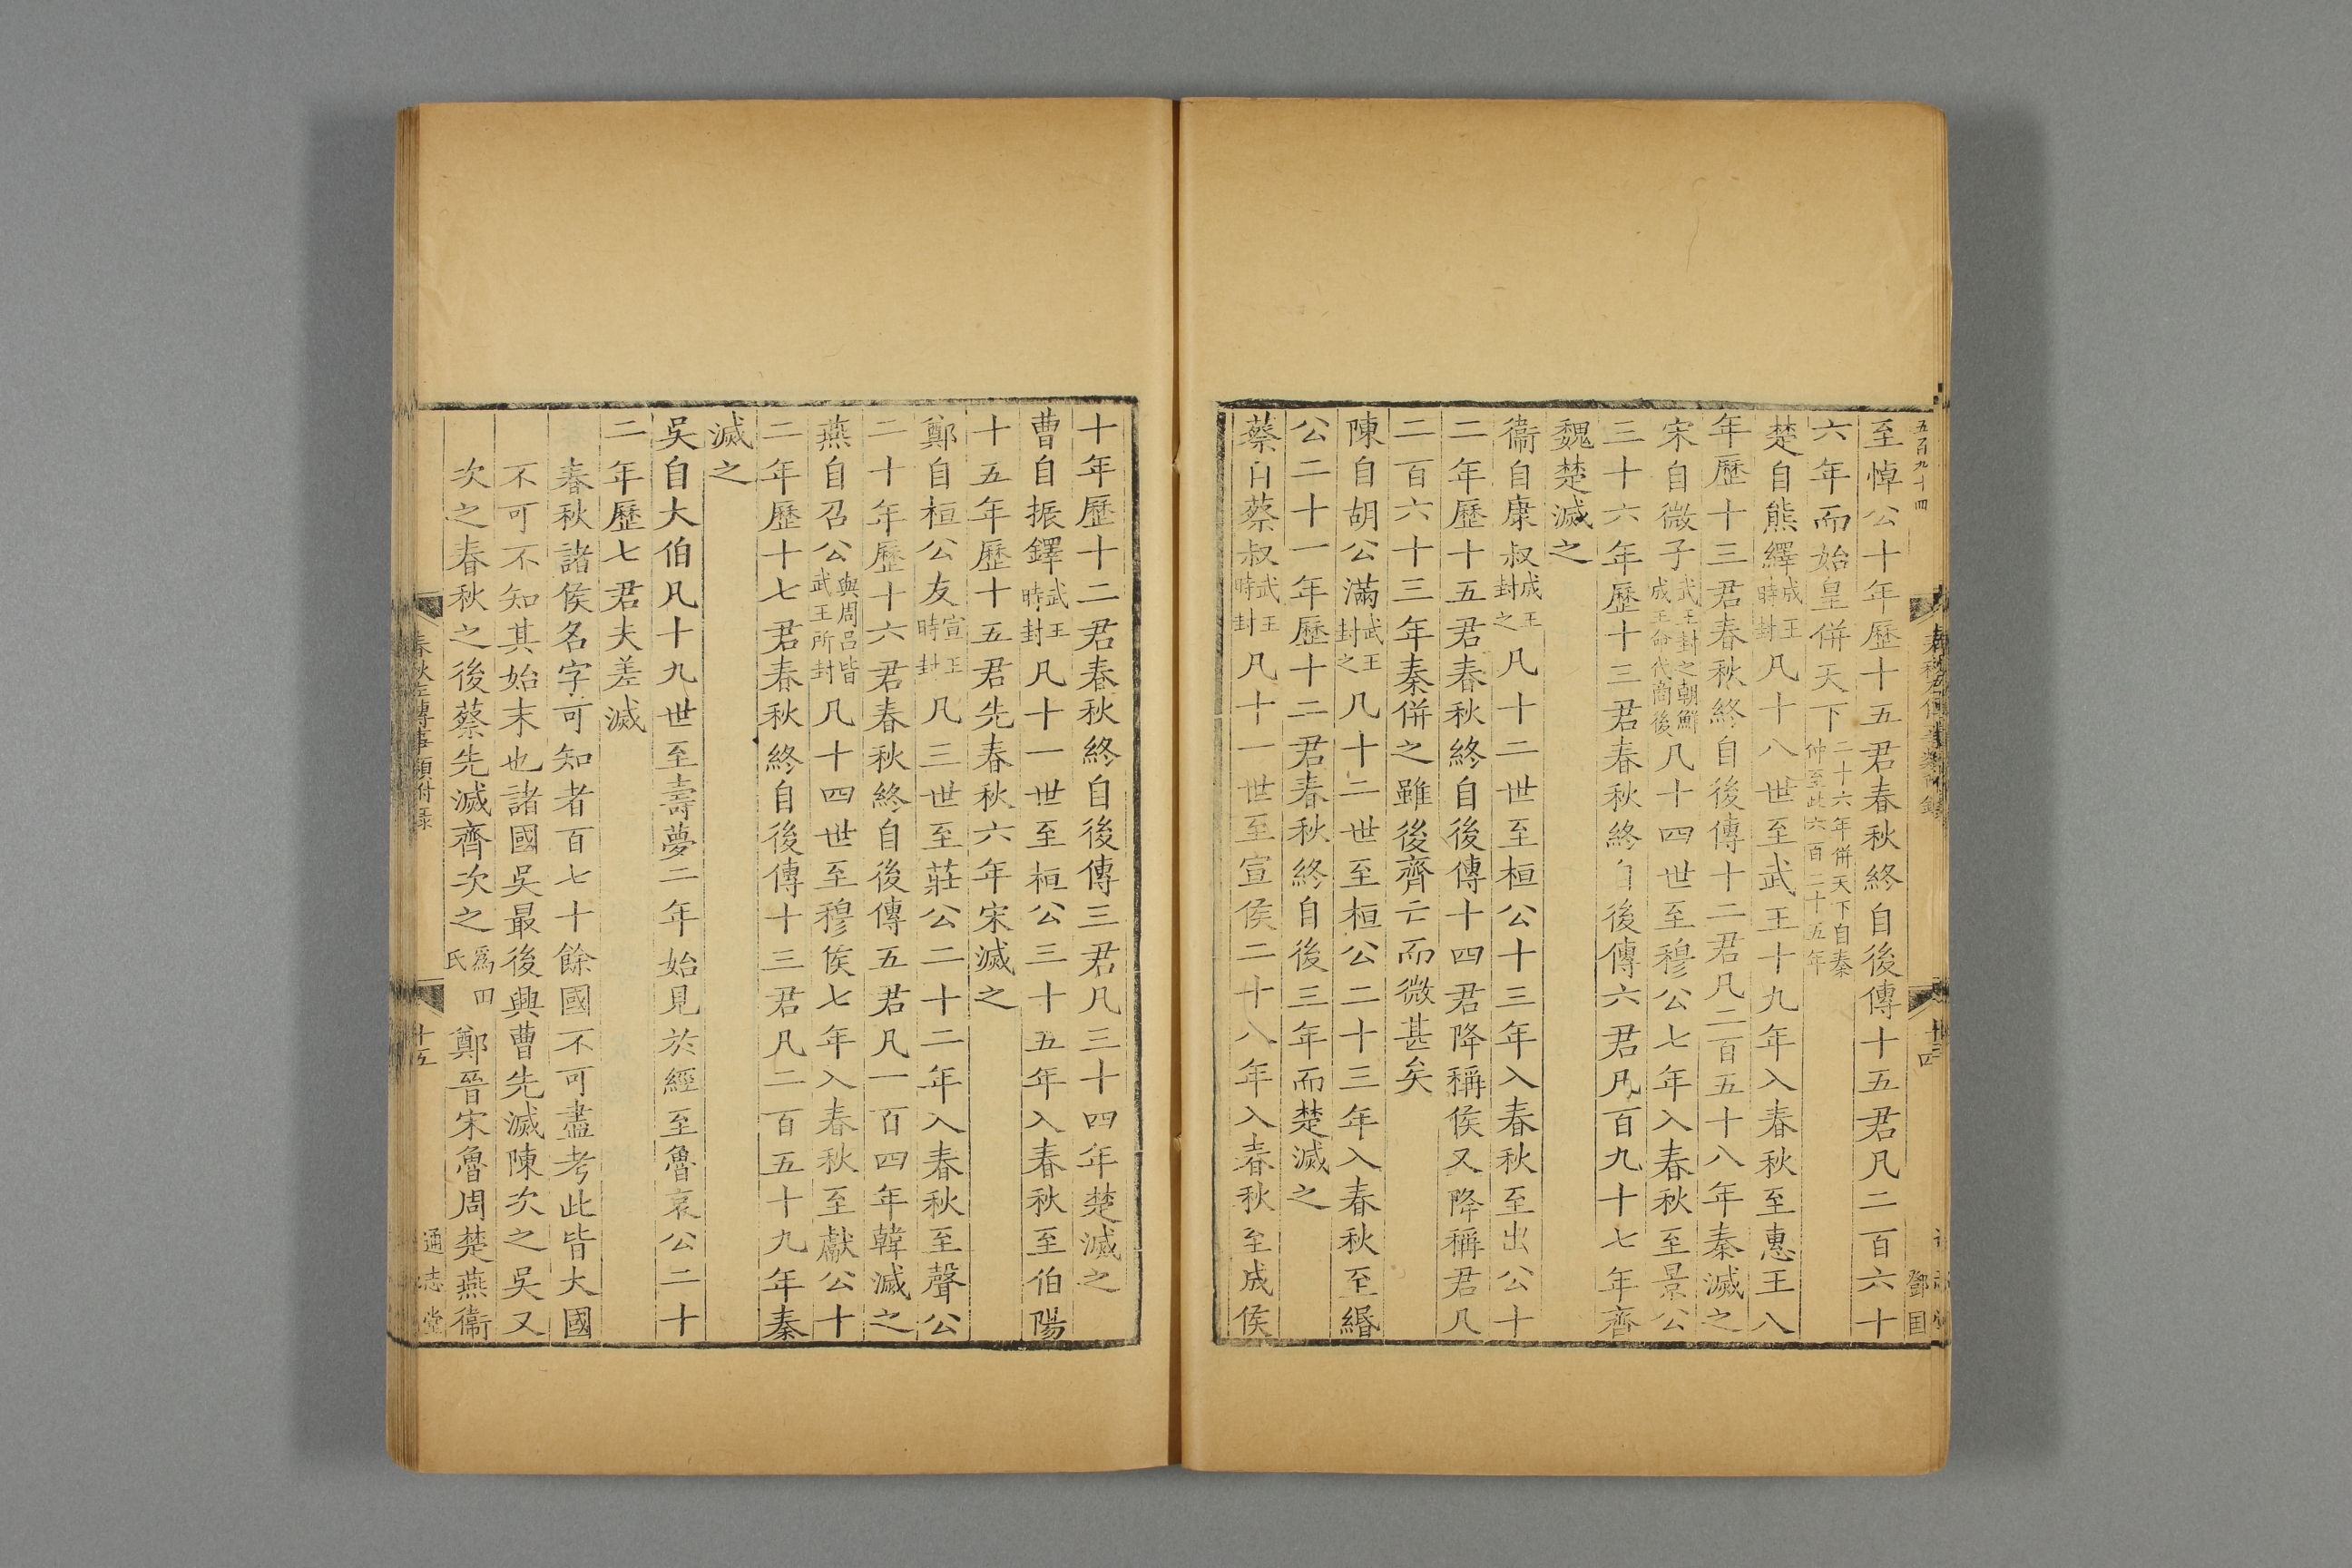 五百九十四
至悼公十年歷十五君春秋終自後傳十五君凡二百六十
六年而始皇併天下二十六年併天下自秦仲至此六百二十五年
楚自熊繹成王時封凡十八世至武王十九年入春秋至惠王八
年歷十三君春秋終自後傳十二君凡二百五十八年秦滅之
宋自微子武王封之朝鮮成王命代商後凡十四世至穆公七年入春秋至景公
三十六年歷十三君春秋終自後傳六君凡百九十七年齊
魏楚滅之
衞自康叔成王封之凡十二世至桓公十三年入春秋至出公十
二年歷十五君春秋終自後傳十四君降稱侯又降稱君凡
二百六十三年秦併之雖後齊亡而微甚矣
陳自胡公滿武王封之凡十二世至桓公二十三年入春秋至緡
公二十一年歷十二君春秋終自後三年而楚滅之
蔡自蔡叔武王時封凡十一世至宣侯二十八年入春秋至成侯
鄧国
十年歷十二君春秋終自後傳三君凡三十四年楚滅之
曹自振鐸武王時封凡十一世至桓公三十五年入春秋至伯陽
十五年歷十五君先春秋六年宋滅之
鄭自桓公友宣王時封凡三世至莊公二十二年入春秋至聲公
二十年歷十六君春秋終自後傳五君凡一百四年韓滅之
燕自召公與周呂皆武王所封凡十四世至穆侯七年入春秋至獻公十
二年歷十七君春秋終自後傳十三君凡二百五十九年秦
滅之
吳自大伯凡十九世至壽夢二年始見於經至魯哀公二十
二年歷七君夫差滅
春秋諸侯名字可知者百七十餘國不可盡考此皆大國
不可不知其始末也諸國吳最後興曹先滅陳次之吳又
次之春秋之後蔡先滅齊次之爲田氏鄭晉宋魯周楚燕衞
春秋左傳事類附錄
十五
通志堂